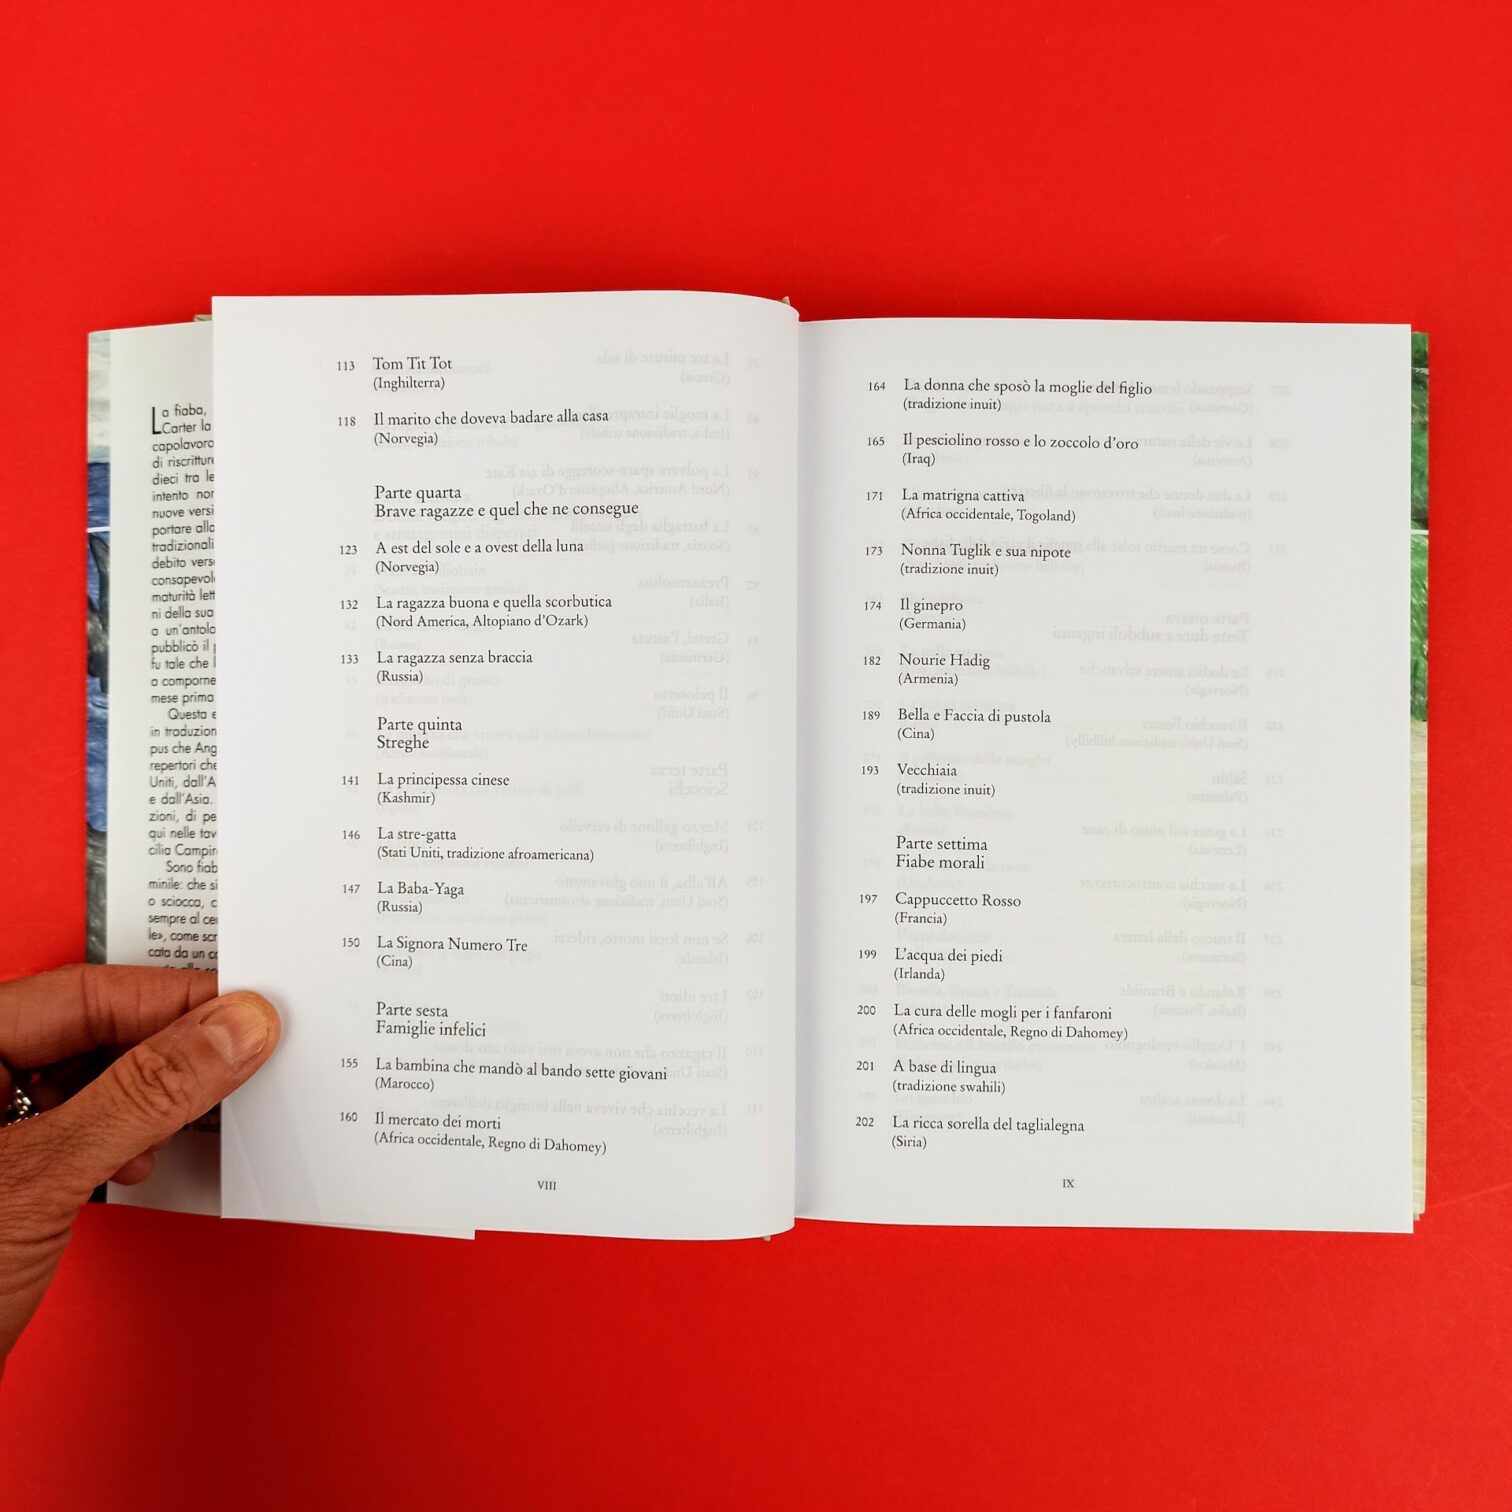 La fiaba,
Carter la
capolavoro
di riscrittur
dieci tra le
intento nor
nuove versi
portare alla
tradizionali
debito vers
consapevol
maturità lett
ni della sua
a un'antolo
pubblicò il
fu tale che l
a comporne
mese prima
Questa e
in traduzion
pus che Ang
repertori che
Uniti, dall'A
e dall'Asia.
zioni, di pe
qui nelle tav
cilia Campir
Sono fiab
minile: che si
o sciocca, c
sempre al ce
le», come scr
cata da un co
113 Tom Tit Tot
(Inghilterra)
118 Il marito che doveva badare alla casa
(Norvegia)
Parte quarta
Brave ragazze e quel che ne consegue
123 A est del sole e a ovest della luna
(Norvegia)
132 La ragazza buona e quella scorbutica
(Nord America, Altopiano d'Ozark)
133 La ragazza senza braccia
(Russia)
Parte quinta
Streghe
141 La principessa cinese
(Kashmir)
146 La stre-gatta
(Stati Uniti, tradizione afroamericana)
147 La Baba-Yaga
(Russia)
150 La Signora Numero Tre
(Cina)
Parte sesta
Famiglie infelici
155 La bambina che mandò al bando sette giovani
(Marocco)
160 Il mercato dei morti
(Africa occidentale, Regno di Dahomey)
VIII
164 La donna che sposò la moglie del figlio
(tradizione inuit)
165 Il pesciolino rosso e lo zoccolo d'oro
(Iraq)
171 La matrigna cattiva
(Africa occidentale, Togoland)
173 Nonna Tuglik e sua nipote
(tradizione inuit)
174 Il ginepro
(Germania)
182 Nourie Hadig
(Armenia)
189 Bella e Faccia di pustola
(Cina)
193 Vecchiaia
(tradizione inuit)
Parte settima
Fiabe morali
197 Cappuccetto Rosso
(Francia)
199 L'acqua dei piedi
(Irlanda)
200 La cura delle mogli per i fanfaroni
(Africa occidentale, Regno di Dahomey)
201 A base di lingua
(tradizione swahili)
202 La ricca sorella del taglialegna
(Siria)
IX